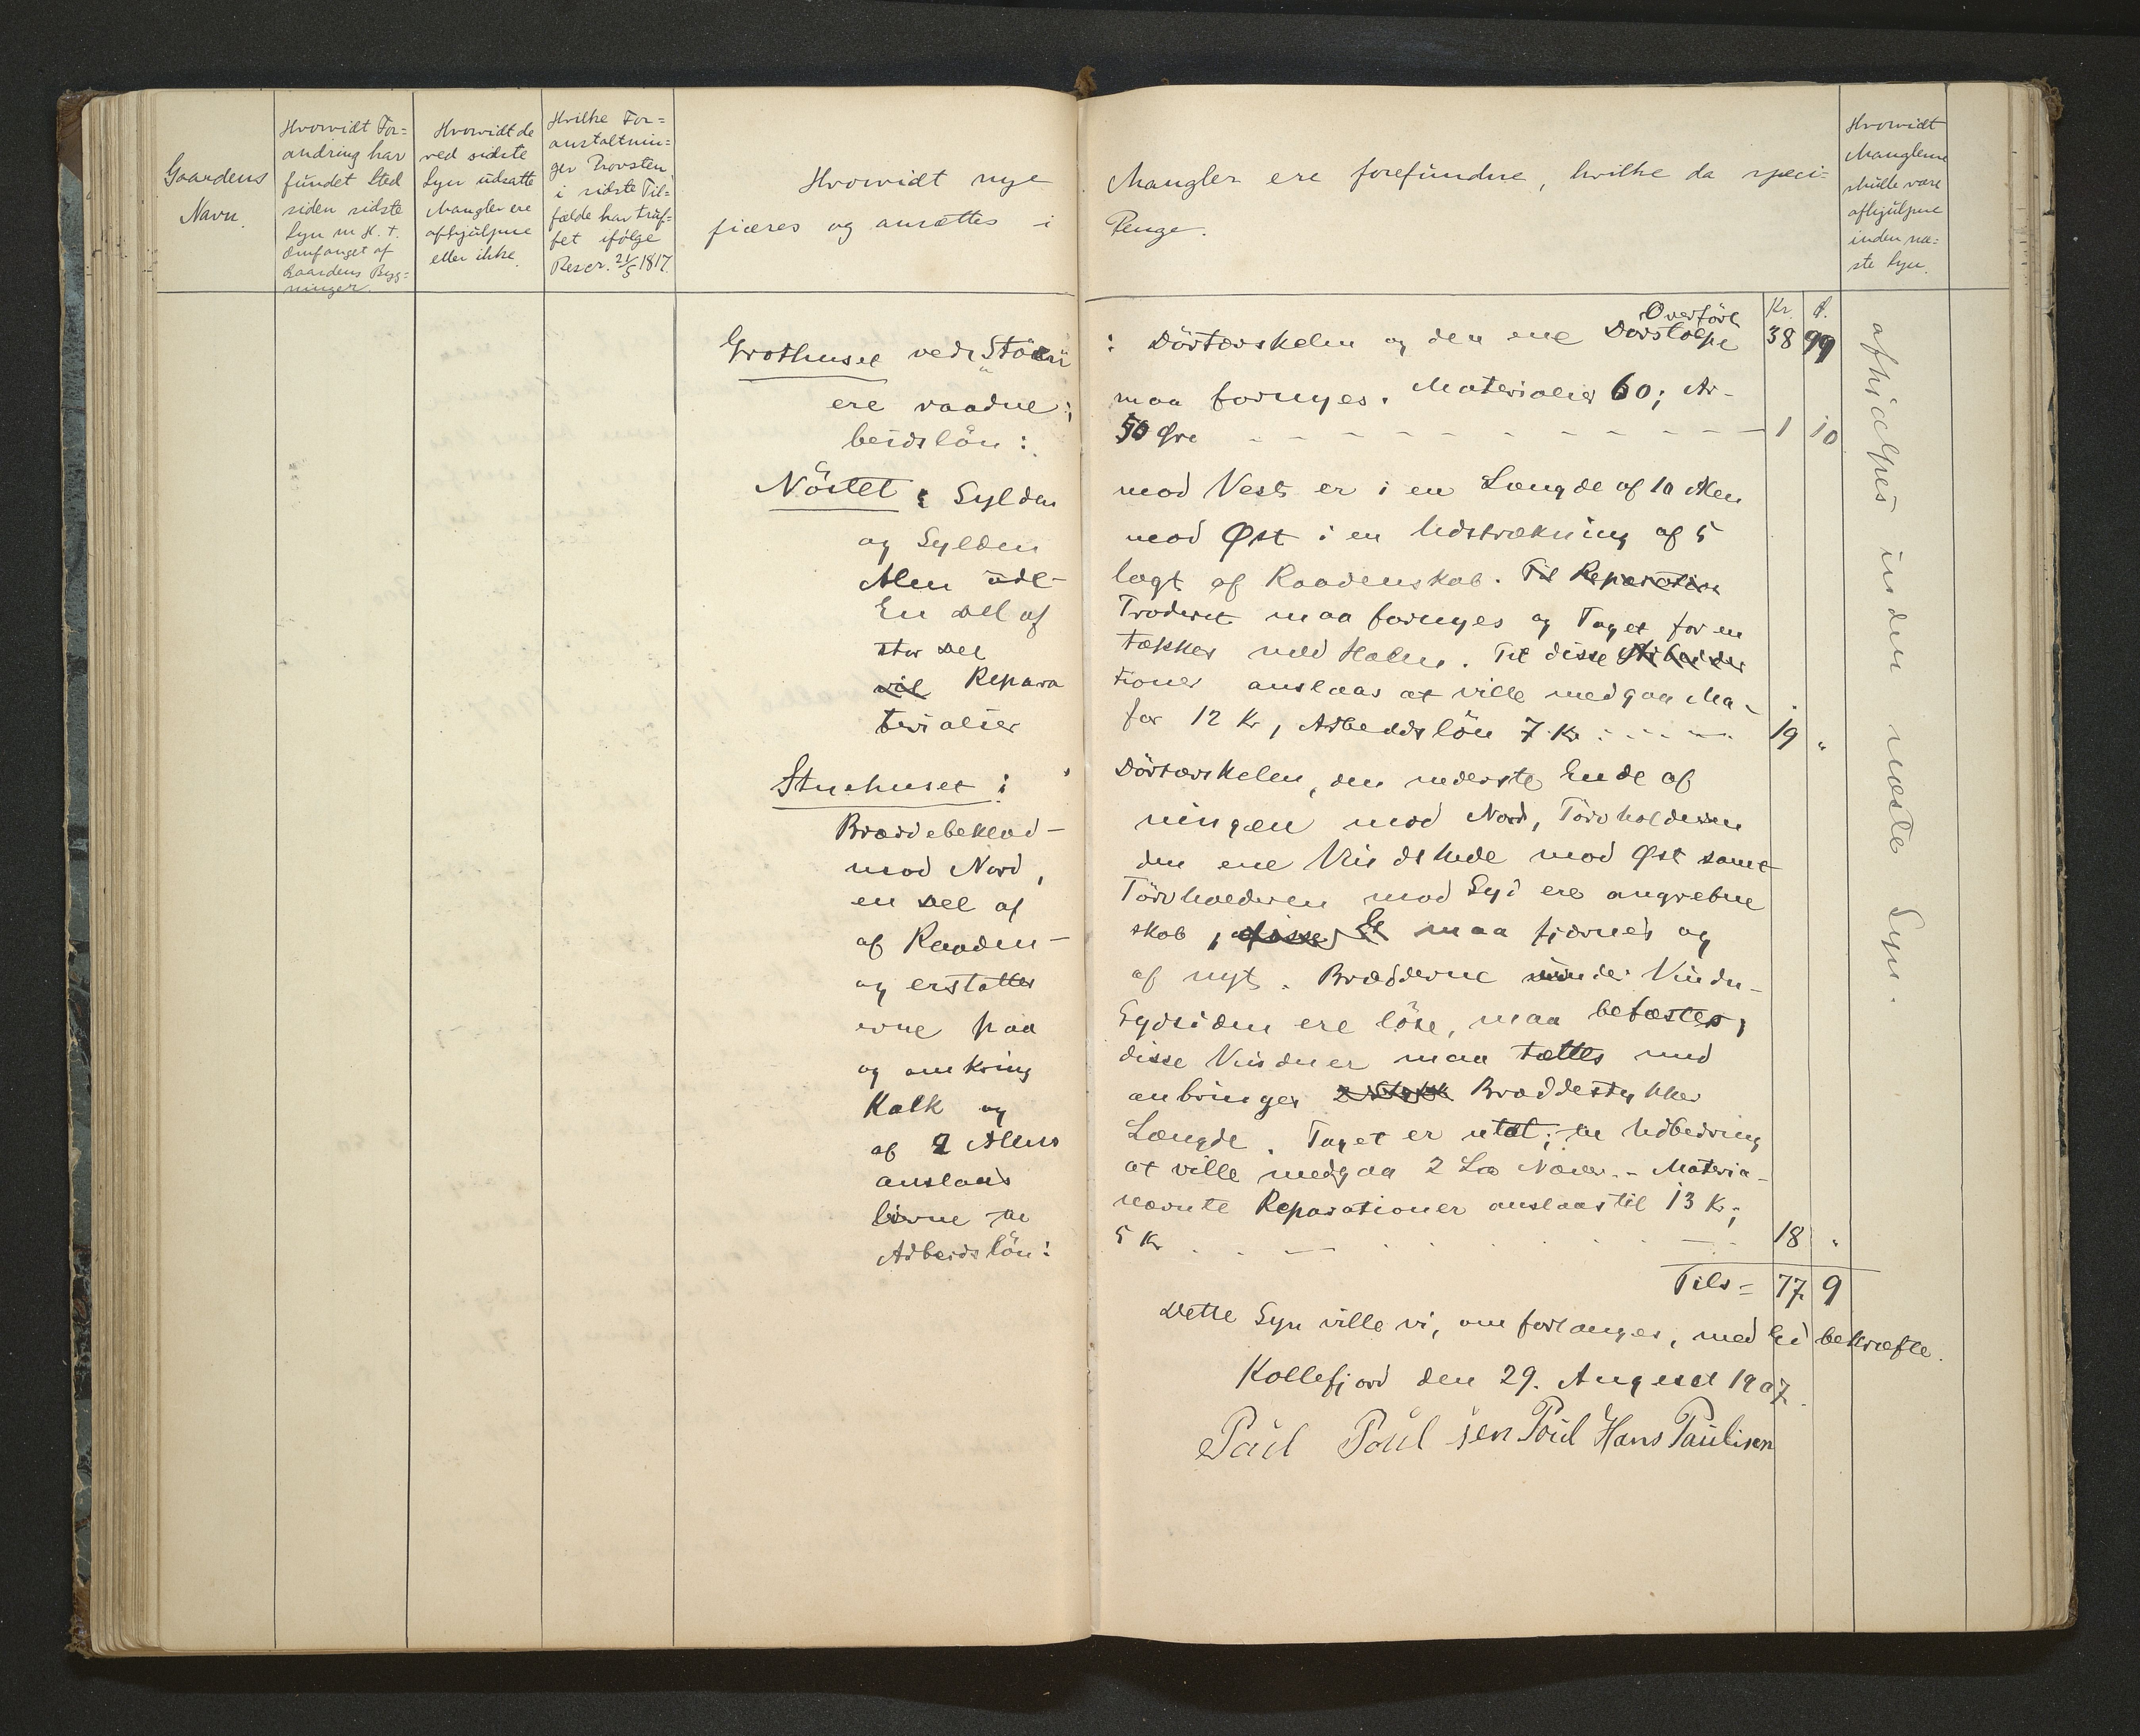 Gaardens
Navn.
Hvorvidt For=
andring har
fundet Sted
siden sidste
Syn m H. t.
Omfanget af
Gaardens Byg=
ninger.
Hvorvidt de
ved sidste
Syn udsatte
Mangler ere
afhjulpne
eller ikke.
Hvilke For=
anstaltnin=
ger Provsten
i sidste Til=
fælde har truf=
fet ifølge
Rescr. 21/5 1817.
Hvorvidt nye Mangler ere forefundne, hvilke da speci=
ficeres og ansættes i Penge.
Hvorvidt
Manglerne
skulle være
afhjulpne
inden næ=
ste Syn.
Kr. Ø.
Overført
Grothuset ved : Dörtærskelen og den ene Dørstolpe 38 99
ere raadne; maa fornyes. Materialier 60; Ar-
beidslön: 50 Øre 1 10
Nöstet: Sylden mod Vest er i en Længde af 10 Alen
og Sylden mod Øst i en Udstrækning af 5
Alen ödelagt af Raadenskab. Til Reparation
En Del af Troderet maa fornyes og Taget for en
stor Del tækkes med Halm. Til disse Arbeider
vil Reparationer anslaas at ville medgaa Ma-
terialier for 12 Kr, Arbeidslön 7 Kr: 19 "
Stuehuset: Dörtærskelen, den nederste Ende af
Bræddebeklædningen mod Nord, Törvholderne
mod Nord, den ene Vindskede mod Øst samt
en Del af Törvholderen mod Syd ere angrebne
af Raadenskab, disse maa fjernes og
og erstattes af nyt. Brædderne under Vindu-
erne paa Sydsiden ere löse, maa befæstes;
og omkring disse Vinduer maa tættes med
Kalk og anbringes 2 Stykk Bræddestykker
af 2 Alens Længde. Taget er utæt; til Udbedring
anslaas at ville medgaa 2 Læs Næver. - Materia-
lierne til nævnte Reparationer anslaas til 13 Kr;
Arbeidslön: 5 Kr 18 "
Tils= 77 9
Dette Syn ville vi, om forlanges, med Ed bekræfte.
Kollefjord den 29. August 1907.
Poul Poulsen Poul Hans Paulisen
afhjælpes inden næste Syn.